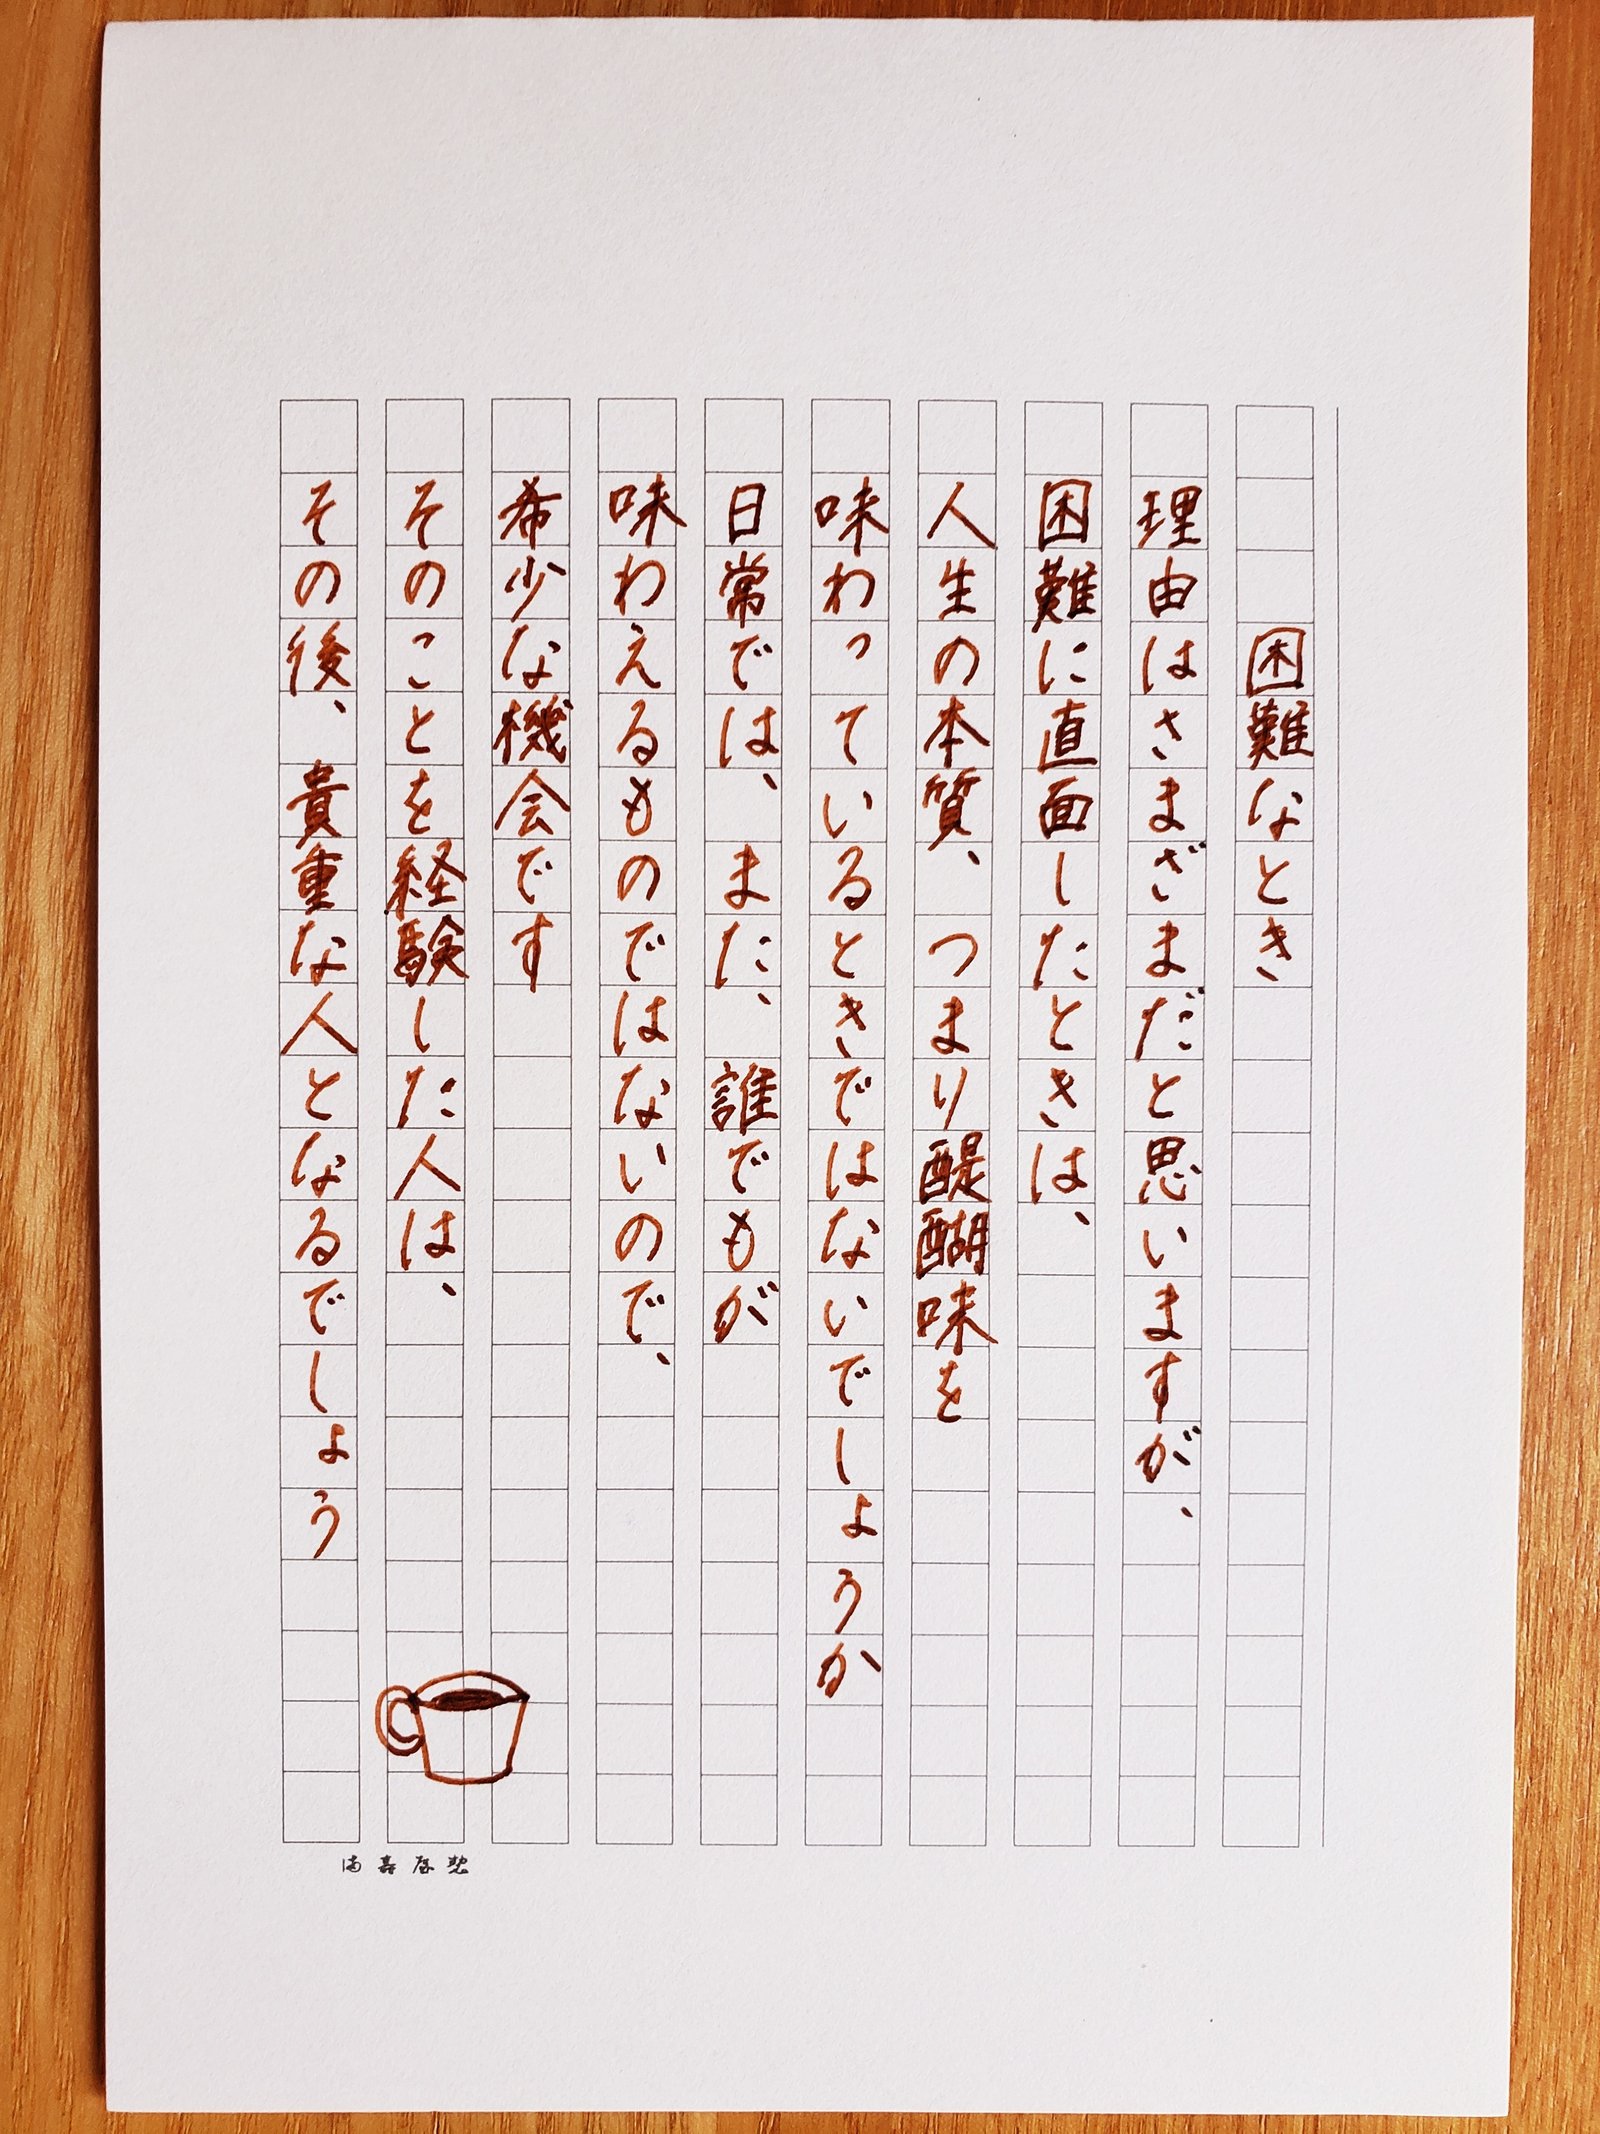 困難なとき
理由はさまざまだと思いますが、
困難に直面したときは、
人生の本質、つまり醍醐味を
味わっているときではないでしょうか
日常では、また、誰でもが
味わえるものではないので、
希少な機会です
そのことを経験した人は、
その後、貴重な人となるでしょう